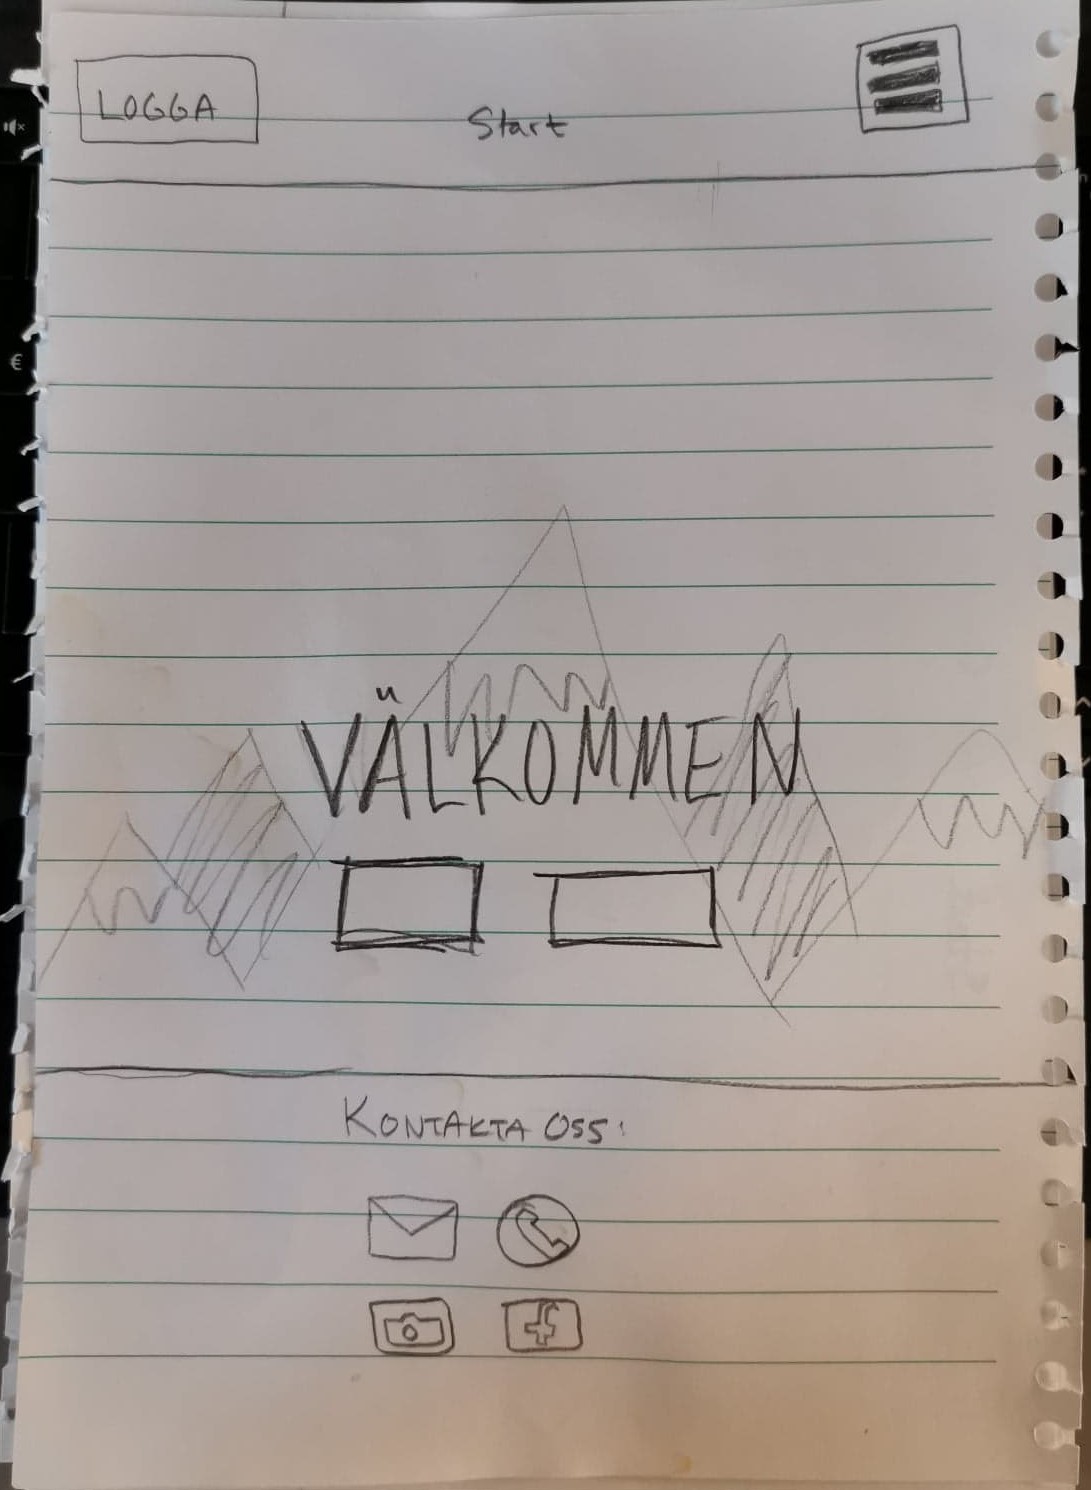 LOGGA
Start
VÄLKOMMEN
KONTAKTA OSS:
f
€